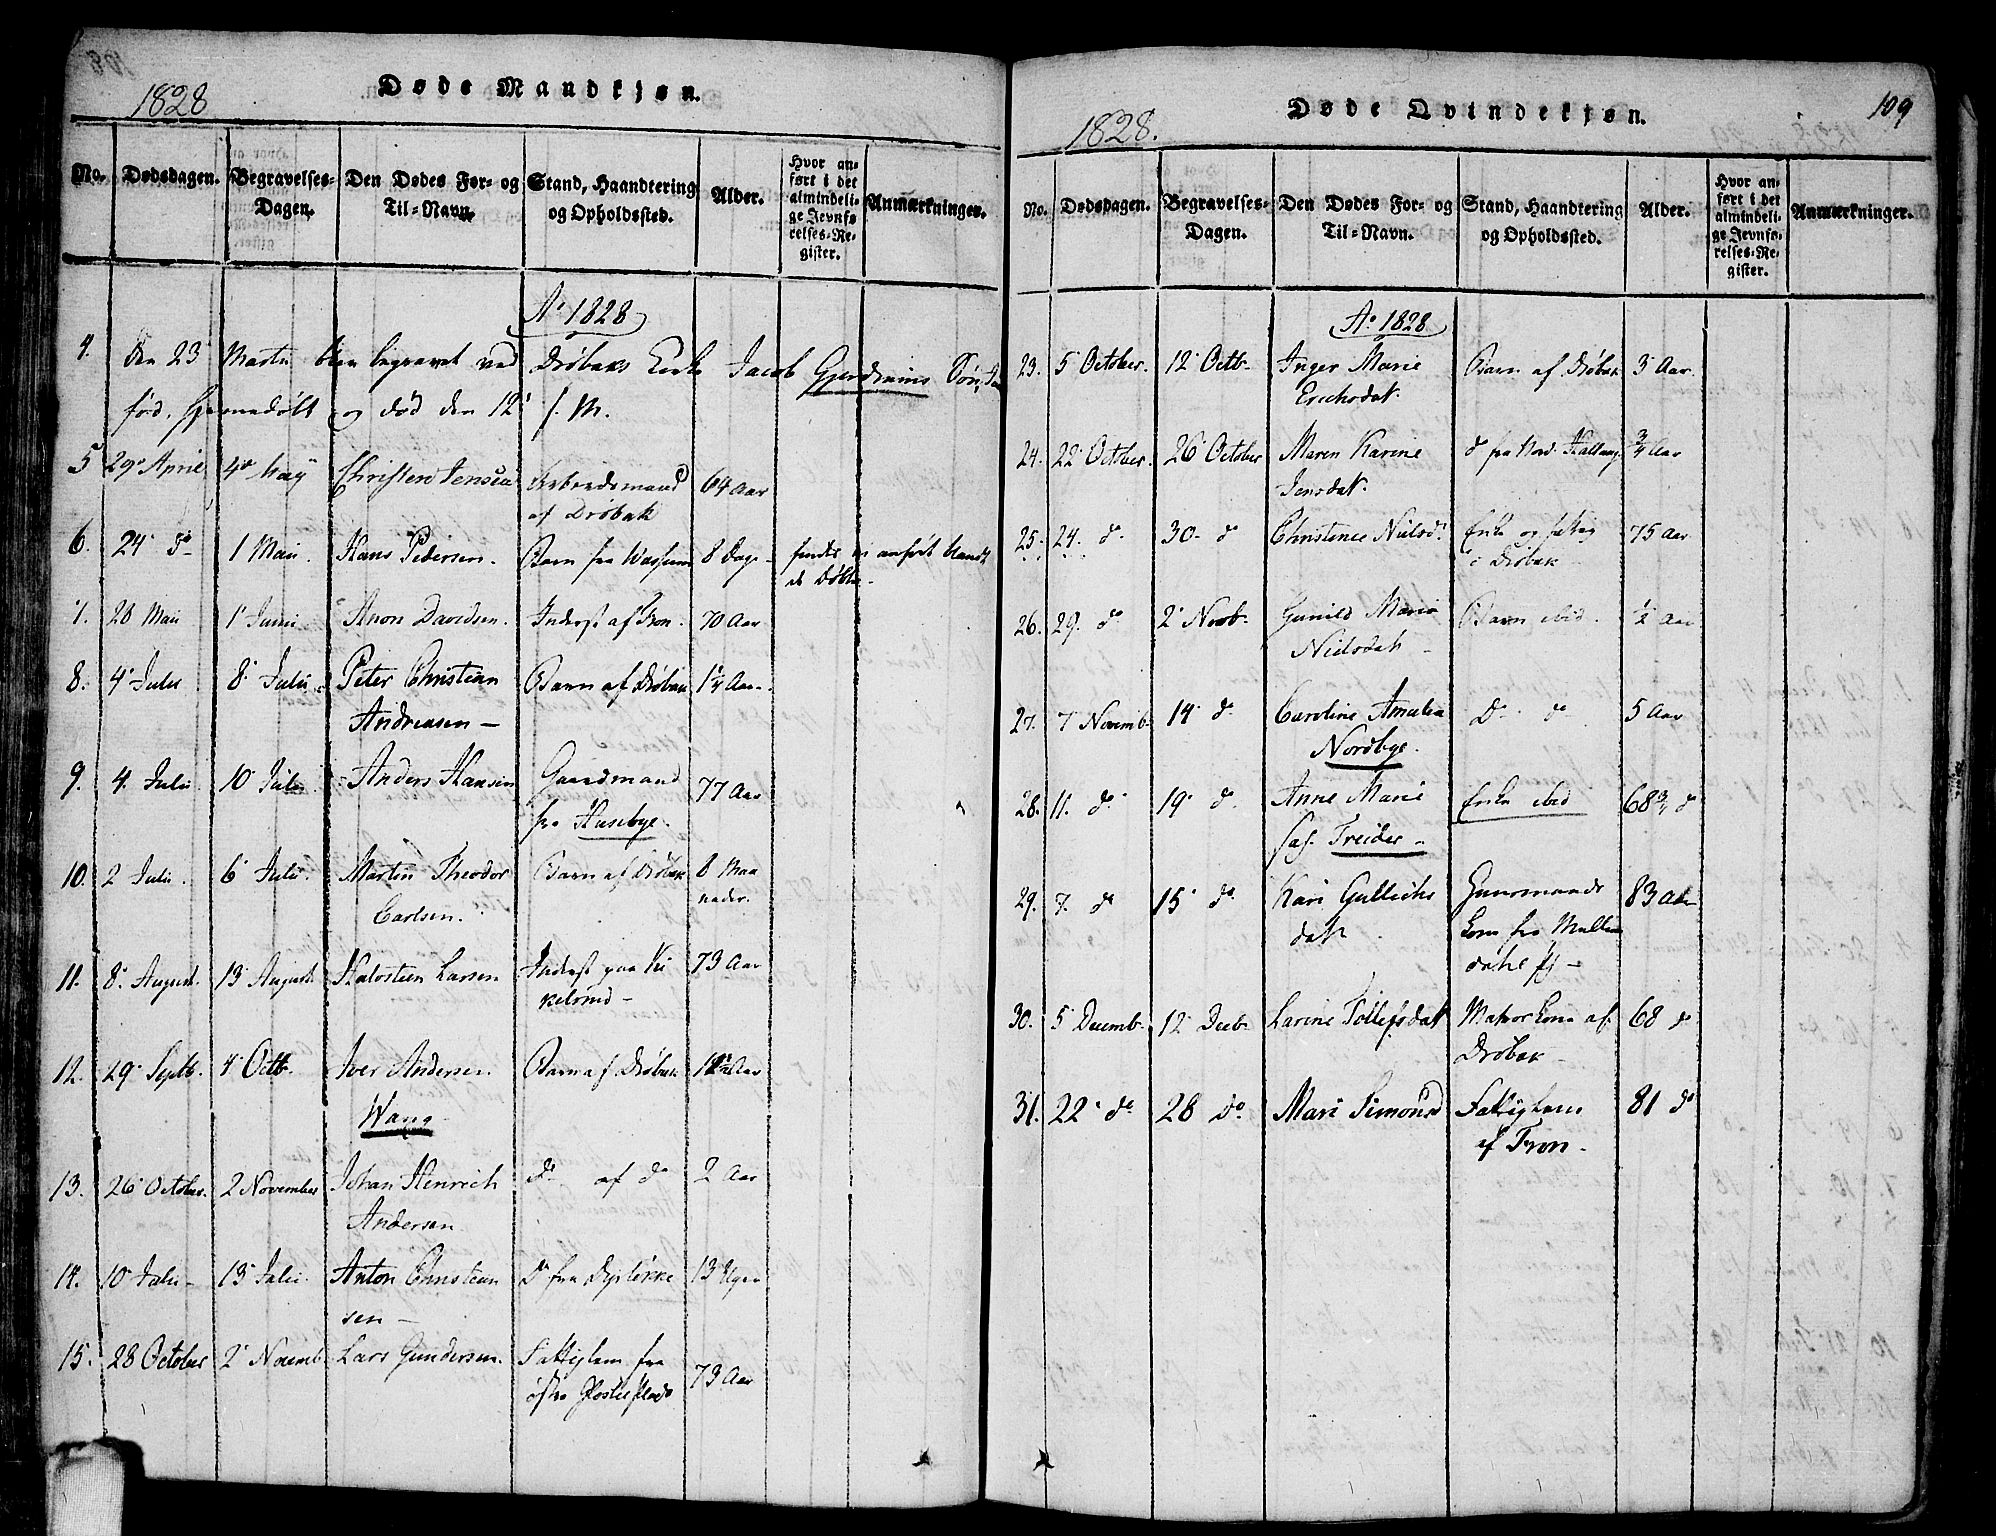 1828
Døde Mandkjøn.
No. Dødsdagen. Begravelses-Dagen. Den Dødes For- og Til-Navn. Stand, Haandtering og Opholdssted. Alder. Hvor anført i det almindelige Jevnførelses-Register. Anmærkninger.
Ao 1828
4. den 23 Martii blev begravet ved Drøbaks Kirke Jacob Gjerdrums Søn,
fød, hjemmedøbt og død den 12' s. M.
5 29 April 4de May Christen Jensen Arbeidsmand 64 Aar
af Drøbak
6. 24 do 1 Maii. Hans Pedersen. Barn fra 8 Dage findes ei anført blandt
de Døbte
7. 28 Maii 1 Junii Anon Davidsen. Inderst af Fron. 70 Aar
8. 4 Julii 8 Julii Peter Christian Barn af Drøbak 1¼ Aar
Andreasen
9. 4. Julii 10 Julii Anders Hansen Gaardmand 77 Aar
fra Husebye.
10. 2 Julii. 6 Julii. Martin Theodor Barn af Drøbak 8 Maa
Carlsen. neder.
11. 8. August. 13 August Halvsteen Larsen Inderst paa 73 Aar
12. 29 Septb. 4 Octb. Iver Andersen Barn af Drøbak Aar
Wang
13. 26 October. 2 November Johan Henrich do af do 2 Aar
Andersen
14. 10 Julii 13 Julii. Anton Christian Do fra Dyrløkke 13 Uger
sen
15. 28 October 2 Novemb. Lars Gundersen. Fattiglem fra 73 Aar
østre
109
1828.
Døde Qvindekjøn.
No. Dødsdagen. Begravelses-Dagen. Den Dødes For- og Til-Navn. Stand, Haandtering og Opholdssted. Alder. Hvor anført i det almindelige Jevnførelses-Register. Anmærkninger.
Ao 1828
23. 5 October. 12 Octb. Inger Marie Barn af Drøbak 3 Aar
Erichsdat.
24. 22 October. 26 October Maren Karine do fra Nord. Hallang ¾ Aar
Jensdat.
25. 24. do 30 do Christence Nielsd. Enke og fattig 75 Aar
i Drøbak
26. 29. do 2 Novb. Gunild Maria Barn ibid. ½ Aar
Nielsdat
27. 7 Novemb. 14 do Caroline Amalia Do do 5 Aar
Nordbye.
28. 11. do 19 do Anne Marie Enke ibid 68¾ do
sal. Treider
29. 7. do 15 do Kari Gullichs Huusmands 83 Aar
dat Kone fra
30. 5 Decemb. 12 Decb. Larine Tollefsdat Matros Kone af 68 do
Drøbak
31. 22 do 28 do Mari Simonsd Fattiglem 81 do
af Fron.